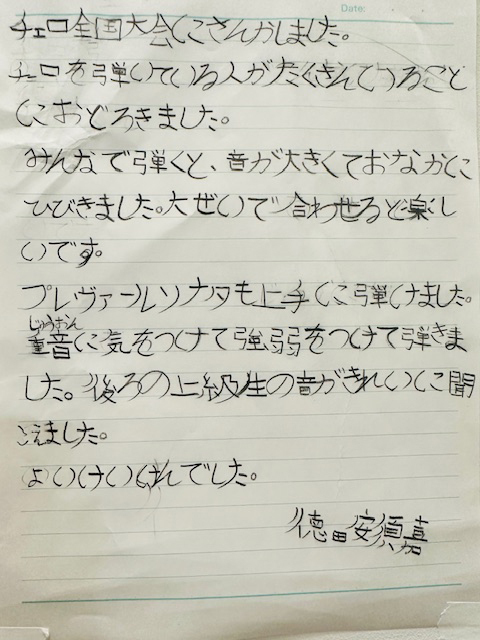 Date:
チェロ全国大会にさんかしました。
チェロを弾いている人がたくさんいること
におどろきました。
みんなで弾くと、音が大きくておなかに
ひびきました。大ぜいで合わせると楽し
いです。
プレヴァールソナタも上手に弾けました。
じゅうおん
重音に気をつけて強弱をつけて弾きま
した。後ろの上級生の音がきれいに聞
こえました。
よいけいけんでした。
徳田安須嘉